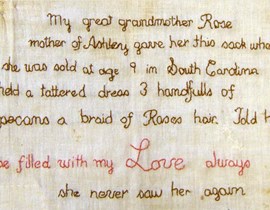 My great grandmother Rose
mother of Ashley gave her this sack when
she was sold at age 9 in South Carolina
held a tattered dress 3 handfulls of
pecans a braid of Roses hair. Told h
be filled with my Love always
she never saw her again